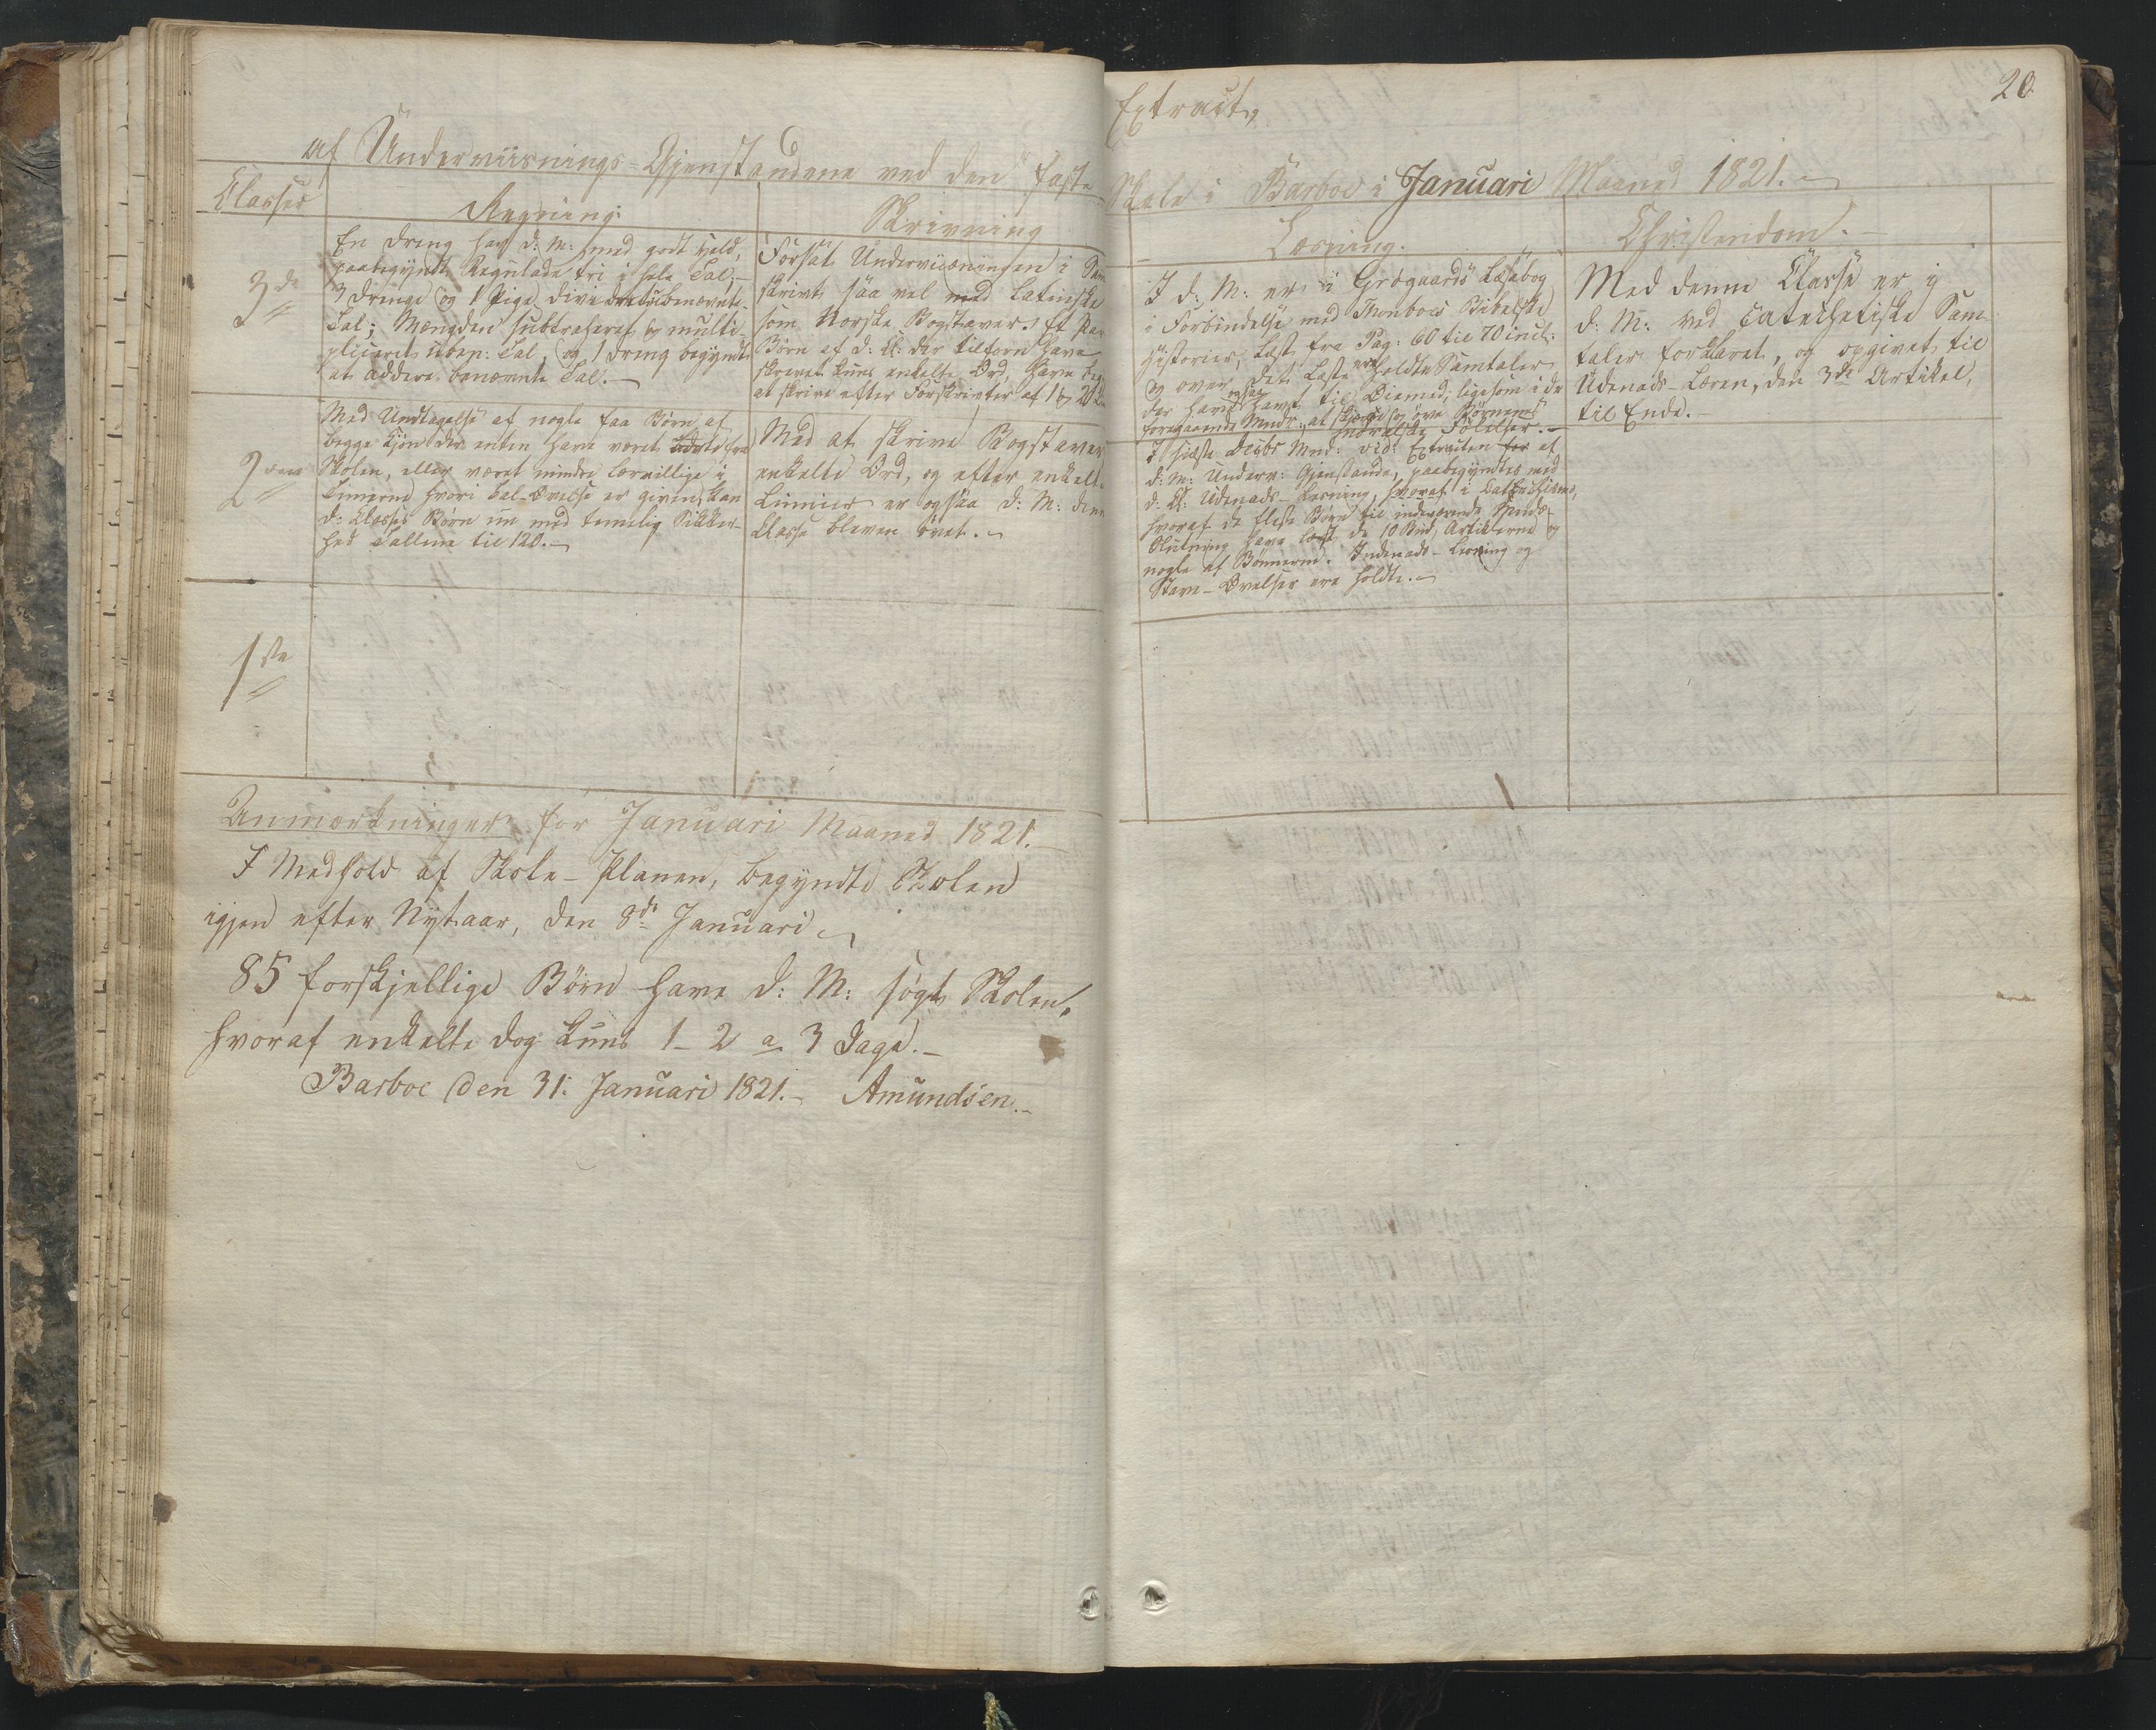 20
Extract,
af Underviisnings-Gjenstandene ved den faste
Skole i Barboe i Januari Maaned 1821.
Classer
Regning.
Skrivning
Læsning.
Christendom.
3de
En Dreng har d: M: med godt Held,
paabegyndt Regulade tri i hele Tal;
3 Drenge og 1 Pige dividere ubenævnte
Tal; Mængden subtraheret og multi
pliceret uben: Tal, og 1 Dreng begyndt
at addere benævnte Tal.
Forsat Underviisningen i
skrivt saa vel med latinske
som Norske Bogstaver. Et Par
Børn af d: Cl: der tilforn have
skrevet kuns enkelte Ord, have
at skrive efter Forskrivter af 1 og 2
I d: M: er i Grøgaards Læsebog
i Forbindelse med Thonboes Bibelske
Historier, læst fra Pag: 60 til 70 incl:
og over det læste ere holdte Samtaler
der have ogsaa havt til Øiemed, ligesom i de
foregaaende Mndr:, at skjærpe og øve Børnenes
moralske Følelser.
Med denne Classe er i
d: M: ved Catechetiske Sam
taler forklaret, og opgivet til
Udenads-Læren, den 3de Artikel,
til Ende.
2den
Med Undtagelse af nogle faa Børn af
begge Kjøn der enten have været udeblevne fra
Skolen, eller været mindre lærvillige i
Timerne hvori Tal-Øvelse er given, kan
d: Classes Børn nu med temmelig Sikker-
hed Tallene til 120.
Med at skrive Bogstaver
enkelte Ord, og efter enkelte
Linnier er ogsaa d: M: denne
Classe bleven øvet.
I siste Decbr Mnd: vid: Extracten for af
d: M: Underv: Gjenstande, paabegyndtes med
d: Cl: Udenads-Læsning, hvoraf i Cathechismo,
hvoraf de fleste Børn til indeværende Mnds-
Slutning have læst de 10 Bud, Artiklerne og
nogle af Bønnerne. Indenads-Læsning og
Stave-Øvelser ere holdte.
1ste
Anmærkninger for Januari Maaned 1821.
I Medhold af Skole-Planen, begyndte Skolen
igjen efter Nytaar, den 8de Januari
85 forskjellige Børn have d: M: søgt Skolen,
hvoraf enkelte dog kuns 1-2 a 3 Dage.
Barboe den 31: Januari 1821. Amundsen.